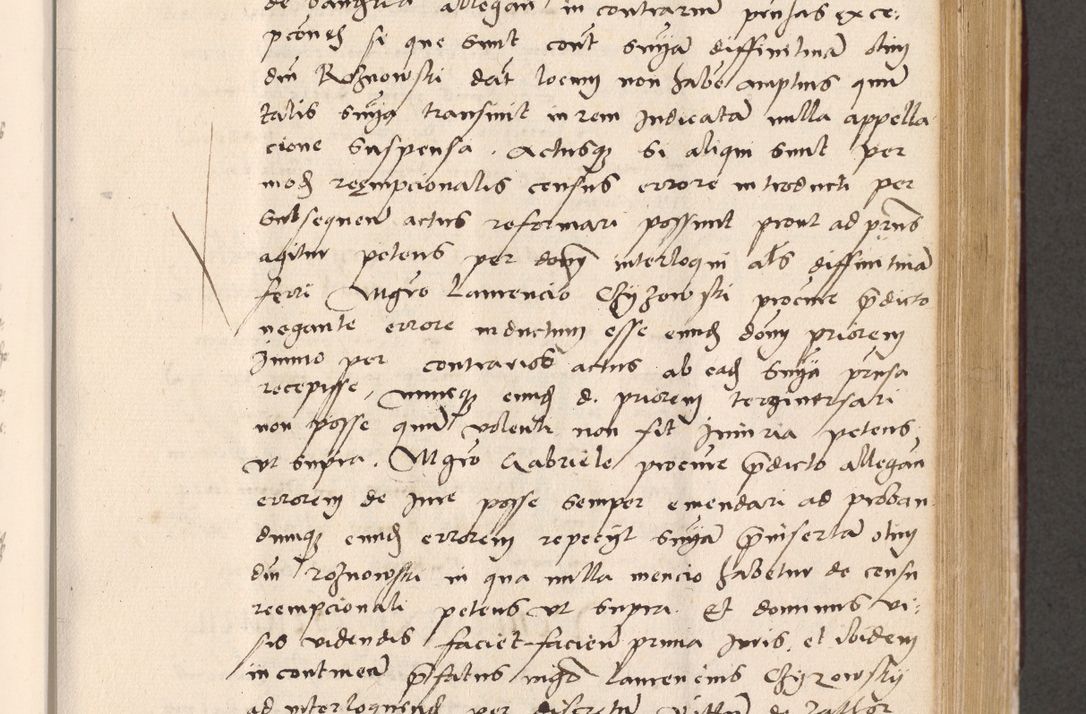 de Bangria allegan in contrarium pensas exce:
pcones si que sunt cont snÿam diffinitinam olim
din Rosnowski dat locum non habe amplius quin
talis snÿa transiuit in rem Judicatam nulla appella
cione suspensa. Actusq si aliqui sunt per
mod reempcionalis census errore introducti per
subsequen actus reformari possunt prout ad pns
agitur petens per dom interloqui als diffinitinam
ferri Mgro Laurencio Chyzowski procure pdicto
negante errore inductum esse eund dom priorem
Immo per contrarios actus ab ead snÿa pnsa
recepisse, nuncq eund d. priorem tergiuersari
non posse quin volenti non fit Iniuria petens
vt supra. Mgro Gabriele procure pdicto allegan
errorem de Iure posse semper emendari ad proban
dumq eund errorem repecÿt snÿam pinsertam olim
din roznowski in qua nulla mencio habetur de censu
reempcionali petens vt supra. Et dominus vi:
sis videndis faciet facien prima Juris. et ibidem
in continen pfatus mgr Laurencius Chyzowsky
ad interloquend per discretum